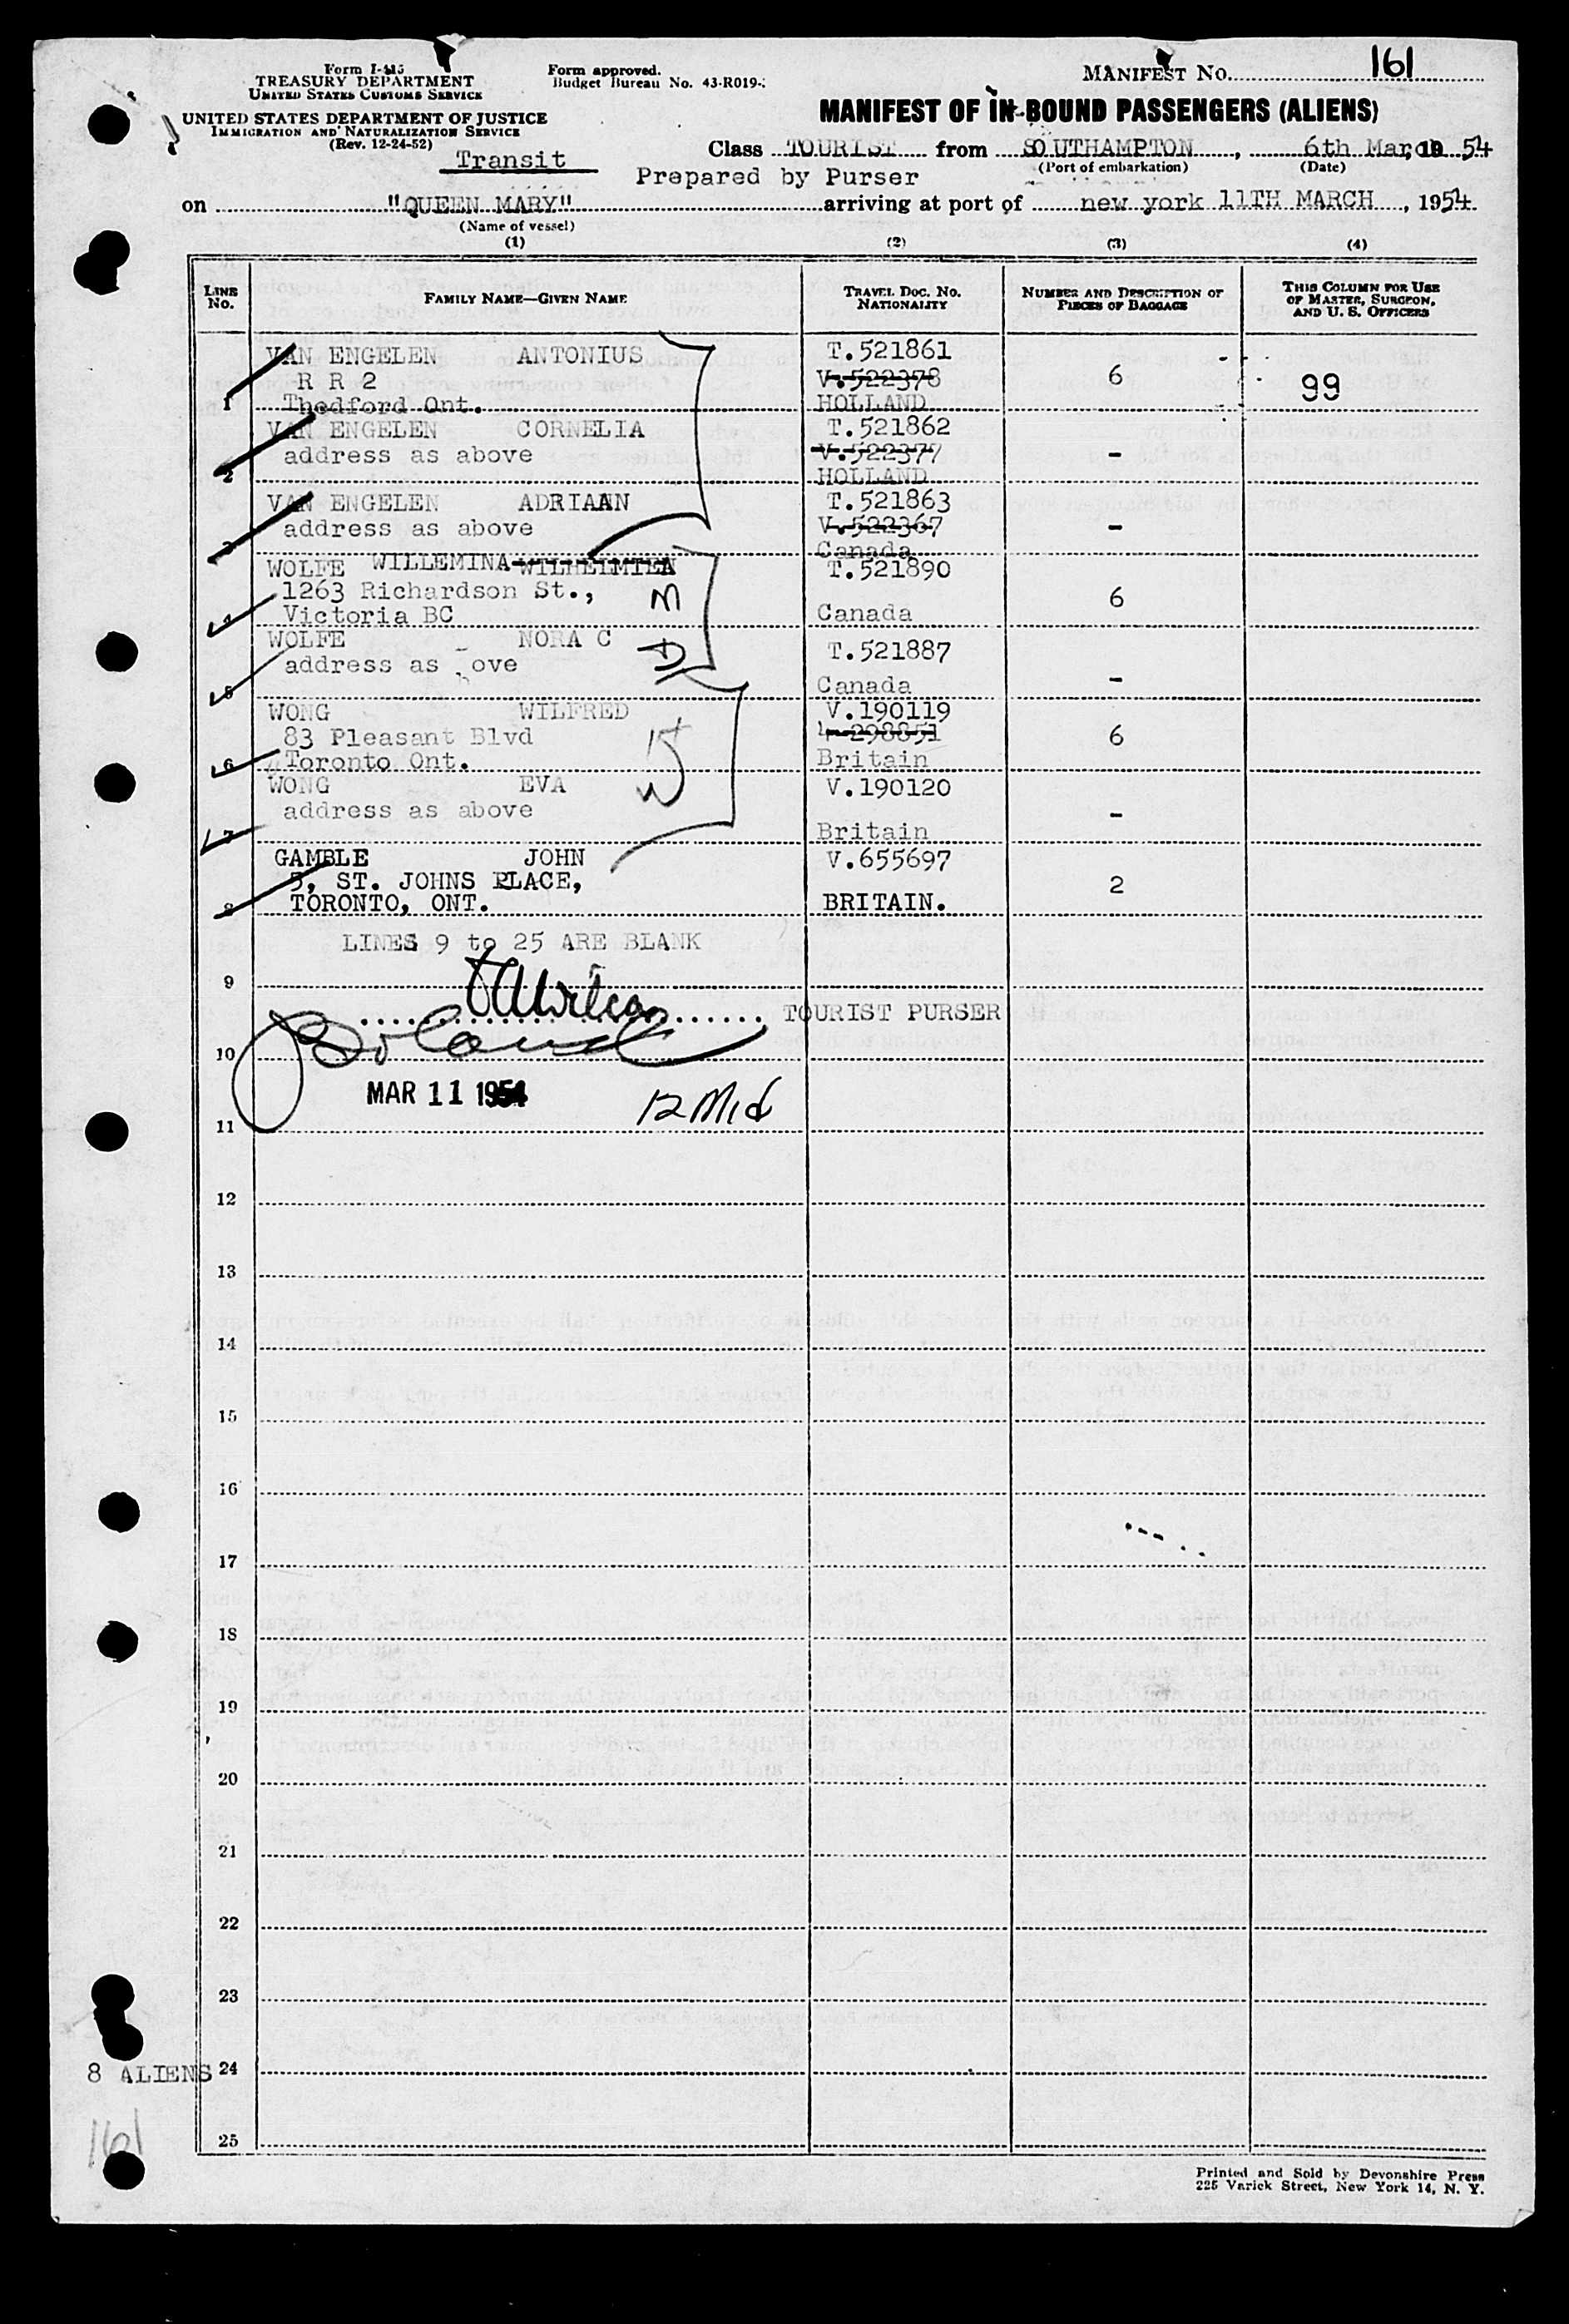 Form I-415
TREASURY DEPARTMENT
UNITED STATES CUSTOMS SERVICE
UNITED STATES DEPARTMENT OF JUSTICE
IMMIGRATION AND NATURALIZATION SERVICE
(Rev. 12-24-52)
Transit
Form approved.
Budget Bureau No. 43-R019-
MANIFEST NO. 161
MANIFEST OF IN-BOUND PASSENGERS (ALIENS)
Class TOURIST from SOUTHAMPTON, 6th March 19 54
(Port of embarkation) (Date)
Prepared by Purser
on "QUEEN MARY" arriving at port of new york 11TH MARCH, 1954
(Name of vessel)
(1) (2) (3) (4)
LINE No. FAMILY NAME—GIVEN NAME TRAVEL DOC. NO. NATIONALITY NUMBER AND DESCRIPTION OF PIECES OF BAGGAGE THIS COLUMN FOR USE OF MASTER, SURGEON, AND U. S. OFFICERS
VAN ENGELEN ANTONIUS T.521861
R R 2 V.522378 6 99
1 Thedford Ont. HOLLAND
VAN ENGELEN CORNELIA T.521862
address as above V.522377 -
2 HOLLAND
VAN ENGELEN ADRIAAN T.521863
address as above V.522367 -
3 Canada
WOLFE WILLEMINA T.521890
1263 Richardson St., 6
4 Victoria BC Canada
WOLFE NORA C T.521887
address as ove -
5 Canada
WONG WILFRED V.190119
83 Pleasant Blvd 298851 6
6 Toronto Ont. Britain
WONG EVA V.190120
address as above -
7 Britain
GAMBLE JOHN V.655697
3, ST. JOHNS PLACE, 2
8 TORONTO, ONT. BRITAIN.
LINES 9 to 25 ARE BLANK
9
TOURIST PURSER
Boland
10
MAR 11 1954 12 Mid
11
12
13
14
15
16
17
18
19
20
21
22
23
8 ALIENS 24
161
25
Printed and Sold by Devonshire Press
225 Varick Street, New York 14, N. Y.